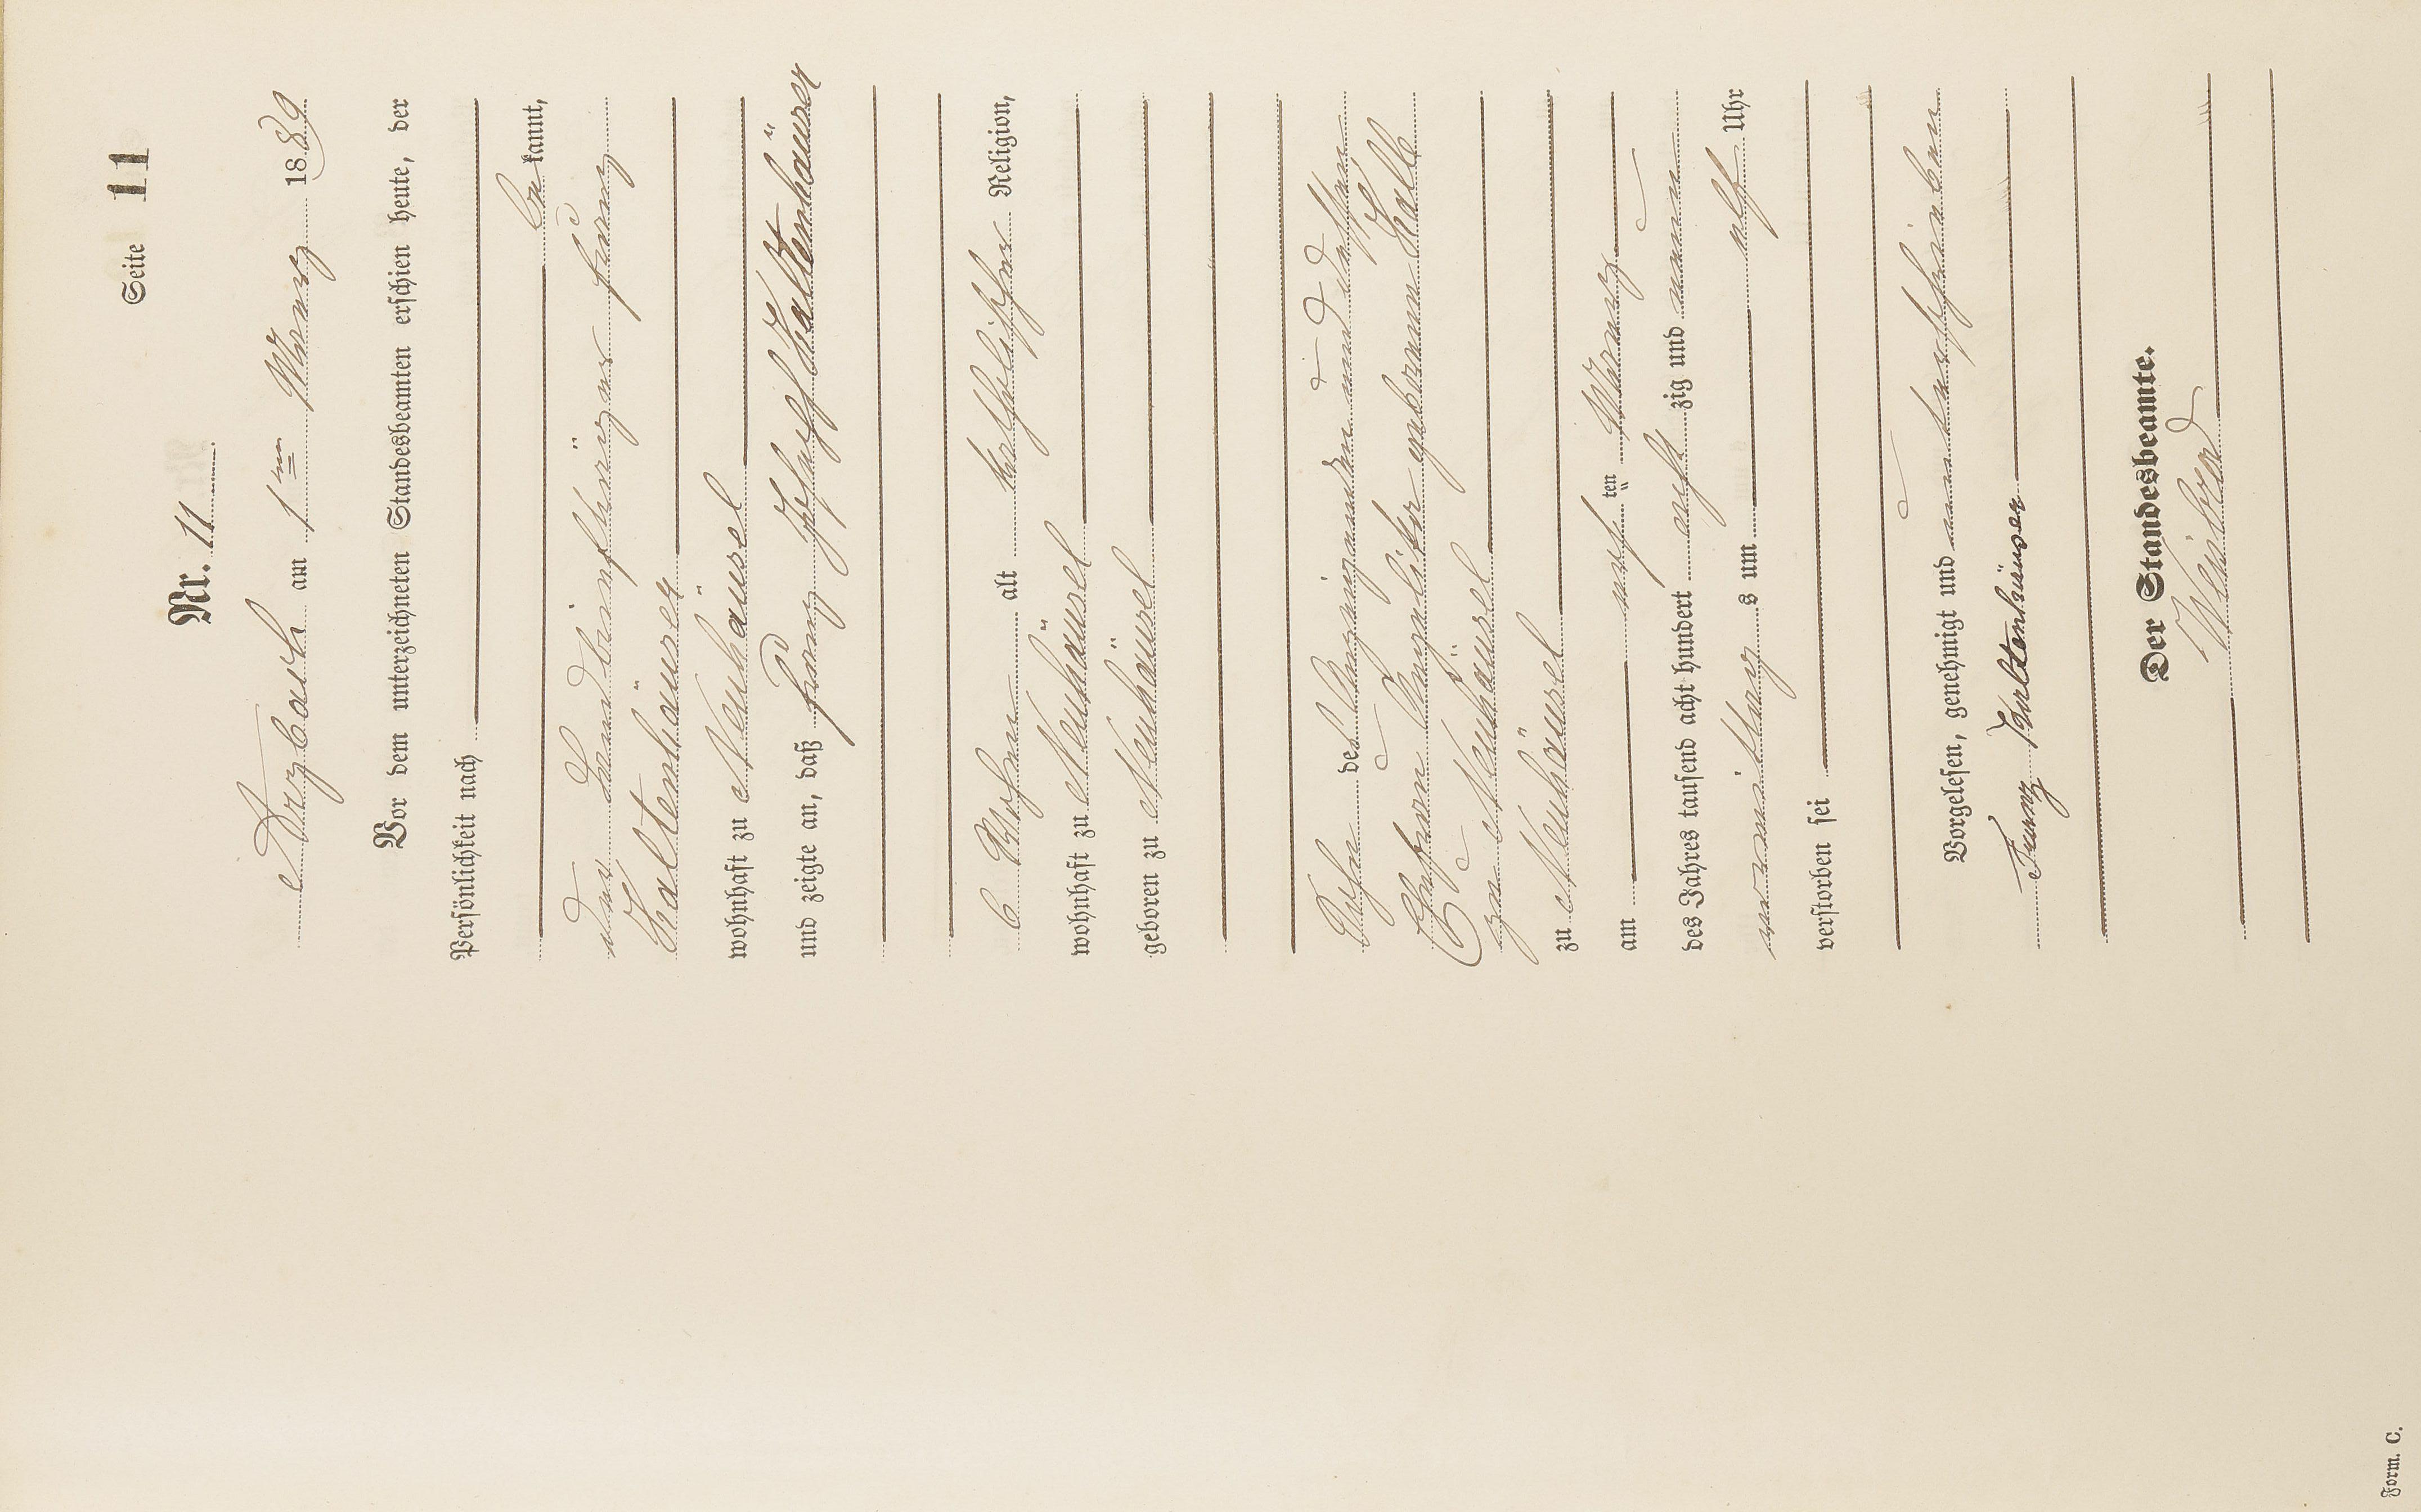 Seite 11
Nr. 11
Arzbach am 1ten Maerz 1889.
Vor dem unterzeichneten Standesbeamten erschien heute, der
Persönlichkeit nach
be kannt,
der Landbriefträger Franz
Kaltenhäuser
wohnhaft zu Neuhäusel
und zeigte an, daß Franz Joseph Kaltenhäuser
6 Wochen alt katholischer Religion,
wohnhaft zu Neuhäusel
geboren zu Neuhäusel
Sohn des Anzeigenden und dessen
Ehefrau geborene
zu Neuhäusel
zu Neuhäusel
am ersten Maerz
des Jahres tausend acht hundert acht zig und neun
vormittag s um elf Uhr
verstorben sei
Vorgelesen, genehmigt und unterschrieben
Franz Kaltenhäuser
Der Standesbeamte.
Weisbrod
Form. C.